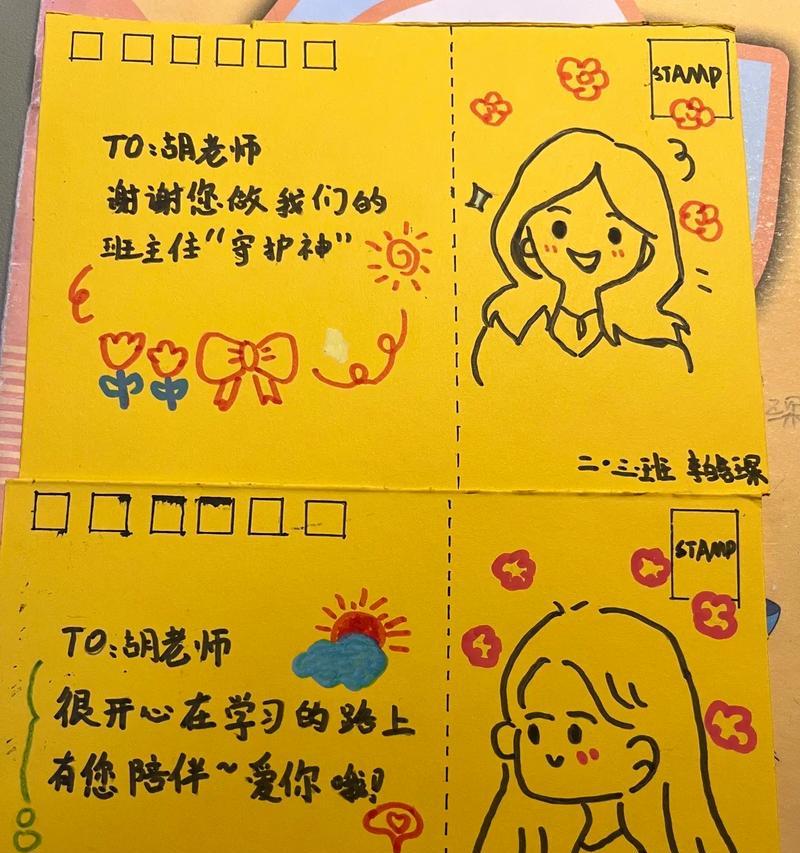 STAMP
TO:胡老师
谢谢您做我们的
班主任“守护神”
二·三班 李皓琛
STAMP
TO:胡老师
很开心在学习的路上
有您陪伴~爱你哦!